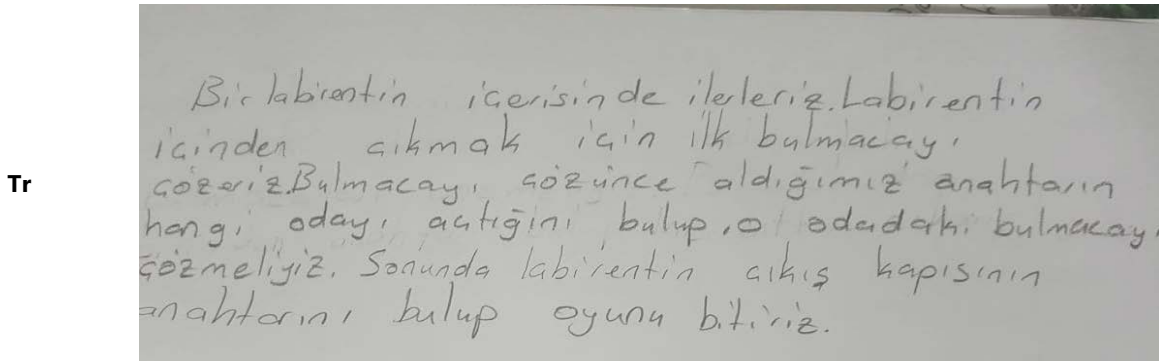 Tr
Bir labirentin içerisinde ilerleriz. Labirentin
içinden çıkmak için ilk bulmacayı
çözeriz. Bulmacayı çözünce aldığımız anahtarın
hangi odayı açtığını bulup, o odadaki bulmacayı
çözmeliyiz. Sonunda labirentin çıkış kapısının
anahtarını bulup oyunu bitiriz.